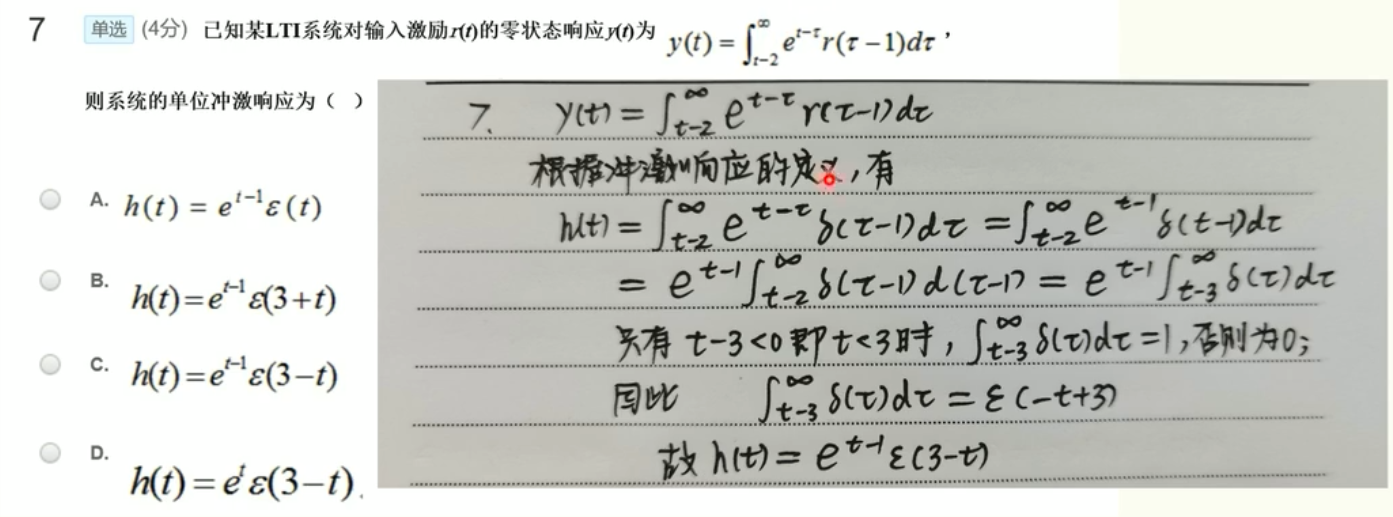 7 单选 (4分) 已知某LTI系统对输入激励r(t)的零状态响应y(t)为 y(t) = ∫_{t-2}^{∞} e^{t-τ} r(τ-1)dτ ,
则系统的单位冲激响应为( )
A. h(t) = e^{t-1}ε(t)
B. h(t)=e^{t-1}ε(3+t)
C. h(t)=e^{t-1}ε(3-t)
D. h(t)=e^{t}ε(3-t).
7. y(t) = ∫_{t-2}^{∞} e^{t-τ} r(τ-1)dτ
根据冲激响应的定义,有
h(t) = ∫_{t-2}^{∞} e^{t-τ} δ(τ-1)dτ = ∫_{t-2}^{∞} e^{t-1} δ(t-1)dτ
= e^{t-1} ∫_{t-2}^{∞} δ(τ-1)d(τ-1) = e^{t-1} ∫_{t-3}^{∞} δ(τ)dτ
只有 t-3<0 即 t<3时, ∫_{t-3}^{∞} δ(τ)dτ = 1, 否则为0;
因此 ∫_{t-3}^{∞} δ(τ)dτ = ε(-t+3)
故 h(t) = e^{t-1}ε(3-t)